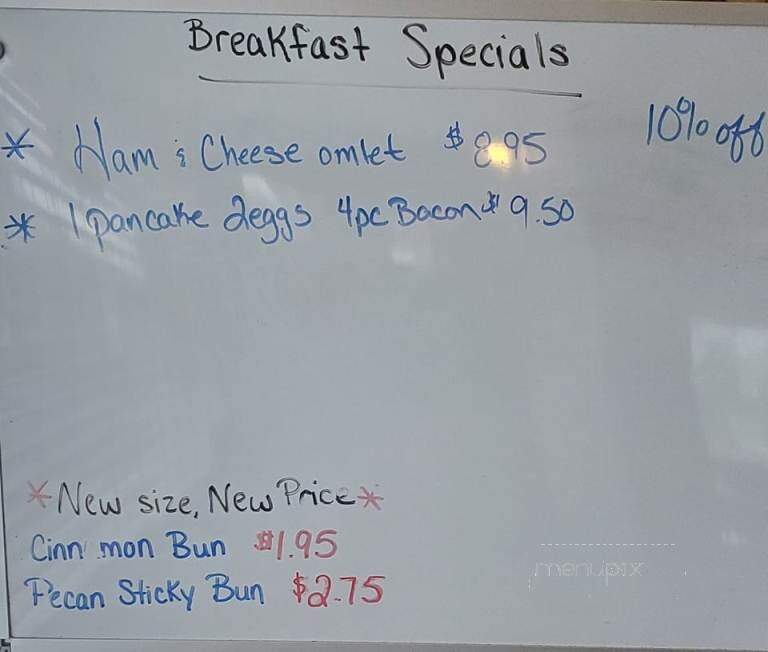 Breakfast Specials
10% off
* Ham & Cheese omlet $8.95
* 1 pancake 2eggs 4pc Bacon $9.50
*New size, New Price*
Cinn mon Bun $1.95
Pecan Sticky Bun $2.75
menupix